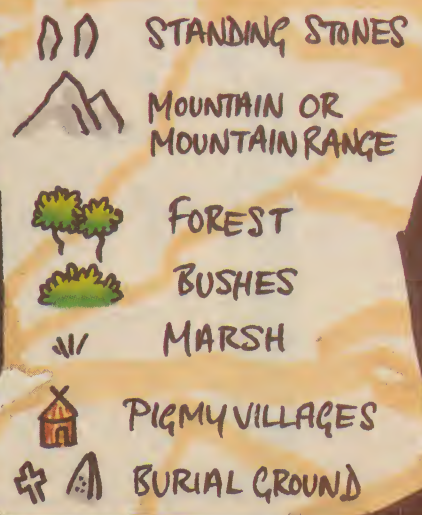 STANDING STONES
MOUNTAIN OR
MOUNTAIN RANGE
FOREST
BUSHES
MARSH
PIGMY VILLAGES
BURIAL GROUND